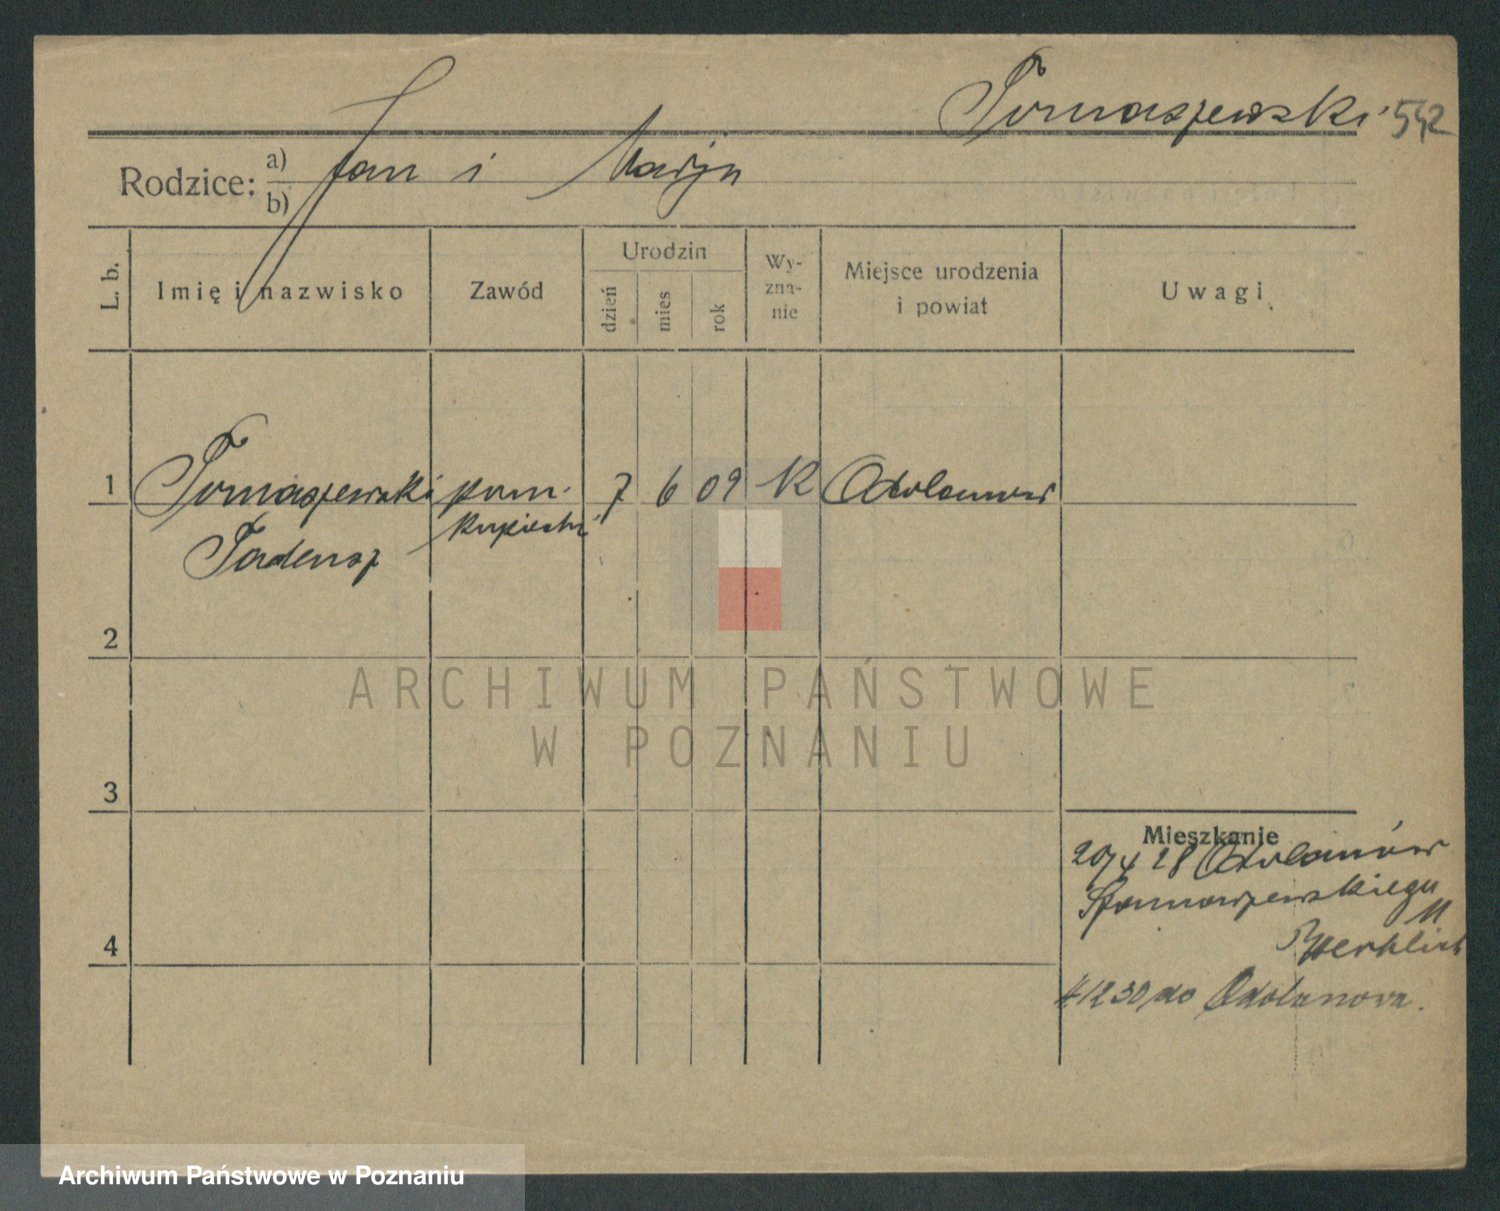 Tomaszewski 542
Rodzice: a) Jan i Marja
b)
L. b. Imię i nazwisko Zawód Urodzin dzień mies rok Wy-zna-nie Miejsce urodzenia i powiat Uwagi
1 Tomaszewski pom. 7 6 09 K Odolanow
Tadeusz kupiecki
2
ARCHIWUM PAŃSTWOWE
W POZNANIU
3
Mieszkanie
20/4 28 Odolanów
11
4
4 12 30 do Odolanowa.
Archiwum Państwowe w Poznaniu